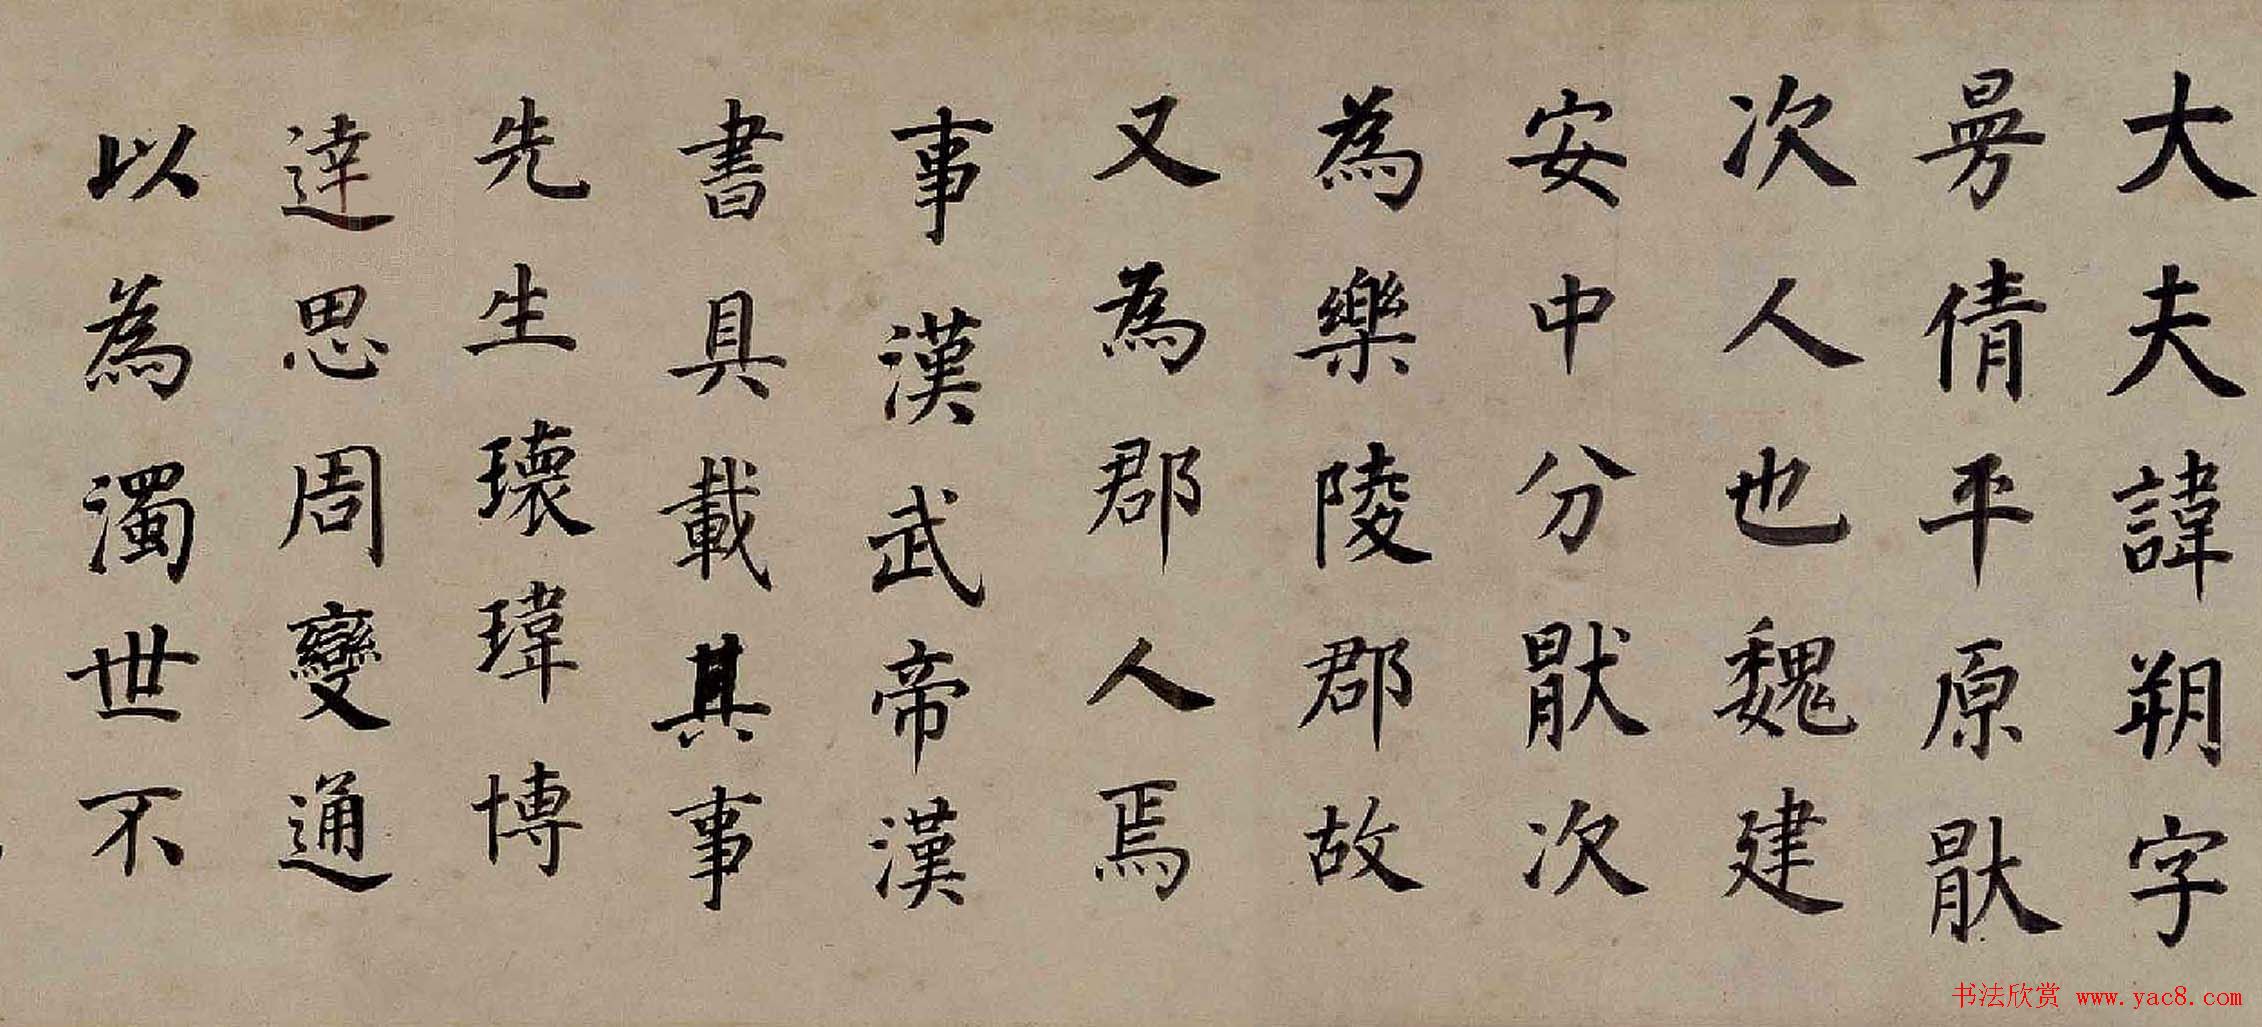 大夫諱朔字
曼倩平原猒
次人也魏建
安中分猒次
為樂陵郡故
又為郡人焉
事漢武帝漢
書具載其事
先生瓌瑋博
達思周變通
以為濁世不
书法欣赏 www.yac8.com